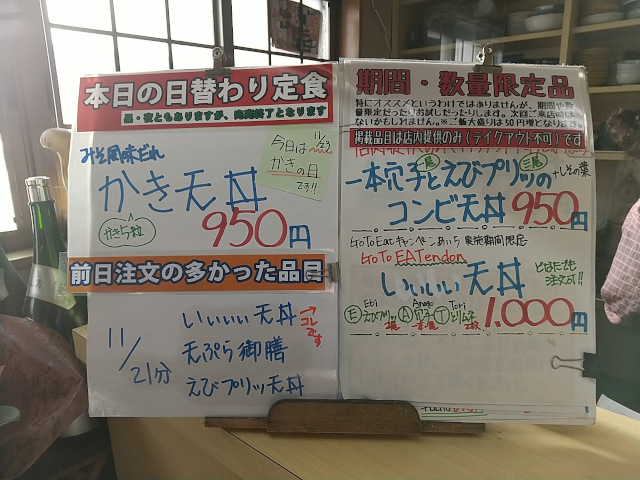 本日の日替わり定食
昼・夜ともありますが、完売終了となります
みそ風味だれ
かき天丼
かき5粒
950円
今日は11/23
かきの日
です!!
前日注文の多かった品目
11/21分
いいぃい天丼 → コレです
天ぷら御膳
えびプリッ天丼
期間・数量限定品
特にオススメというわけではありませんが、期間や数
量限定だったりお試しだったりします。次回ご来店時は
ないかもしれません。※ご飯大盛りは50円増となります
掲載品目は店内提供のみ(テイクアウト不可)です
一本穴子とえびプリッの +しその葉
コンビ天丼 950円
GoTo Eatキャンペーンあいち 実施期間限定
GoTo EATendon
いいぃい天丼 どなたでも
注文可!!
1.000円
Ebi Anago Tori
Ⓔえびプリッ Ⓐ穴子 Ⓣとりムネ
2尾 一本 2枚